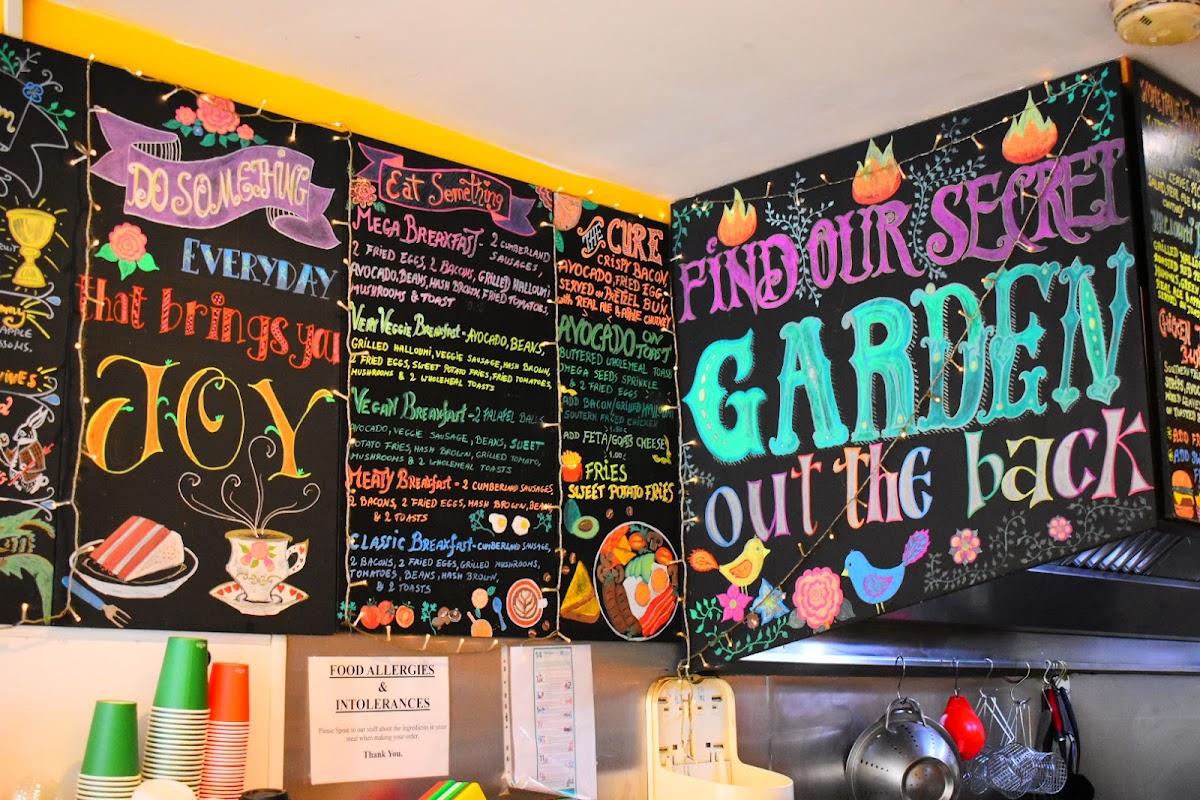 DO SOMETHING
EVERYDAY
that brings you
JOY
Eat Something
MEGA BREAKFAST - 2 CUMBERLAND
SAUSAGES,
2 FRIED EGGS, 2 BACONS, GRILLED HALLOUMI
AVOCADO, BEANS, HASH BROWN, FRIED TOMATOES,
MUSHROOMS & TOAST
VERY VEGGIE BREAKFAST - AVOCADO, BEANS,
GRILLED HALLOUMI, VEGGIE SAUSAGE, HASH BROWN,
2 FRIED EGGS, SWEET POTATO FRIES, FRIED TOMATOES,
MUSHROOMS & 2 WHOLEMEAL TOASTS
VEGAN BREAKFAST - 2 FALAFEL BALLS
AVOCADO, VEGGIE SAUSAGE, BEANS, SWEET
POTATO FRIES, HASH BROWN, GRILLED TOMATO,
MUSHROOMS & 2 WHOLEMEAL TOASTS
MEATY BREAKFAST - 2 CUMBERLAND SAUSAGES,
2 BACONS, 2 FRIED EGGS, HASH BROWN, BEANS
& 2 TOASTS
CLASSIC BREAKFAST - CUMBERLAND SAUSAGE,
2 BACONS, 2 FRIED EGGS, GRILLED MUSHROOMS,
TOMATOES, BEANS, HASH BROWN,
& 2 TOASTS
THE CURE
CRISPY BACON,
AVOCADO, FRIED EGG,
SERVED ON PRETZEL BUN,
with REAL ALE & APPLE CHUTNEY
AVOCADO ON TOAST
BUTTERED WHOLEMEAL TOAST
OMEGA SEEDS SPRINKLE
& 2 FRIED
EGGS
ADD BACON/GRILLED HALLOUMI
SOUTERN FRIED CHICKEN
ADD FETA/GOATS CHEESE
1.00
FRIES
SWEET POTATO FRIES
FIND OUR SECRET
GARDEN
out the back
FOOD ALLERGIES
&
INTOLERANCES
Please Speak to our staff about the ingredients in your
meal when making your order.
Thank You.